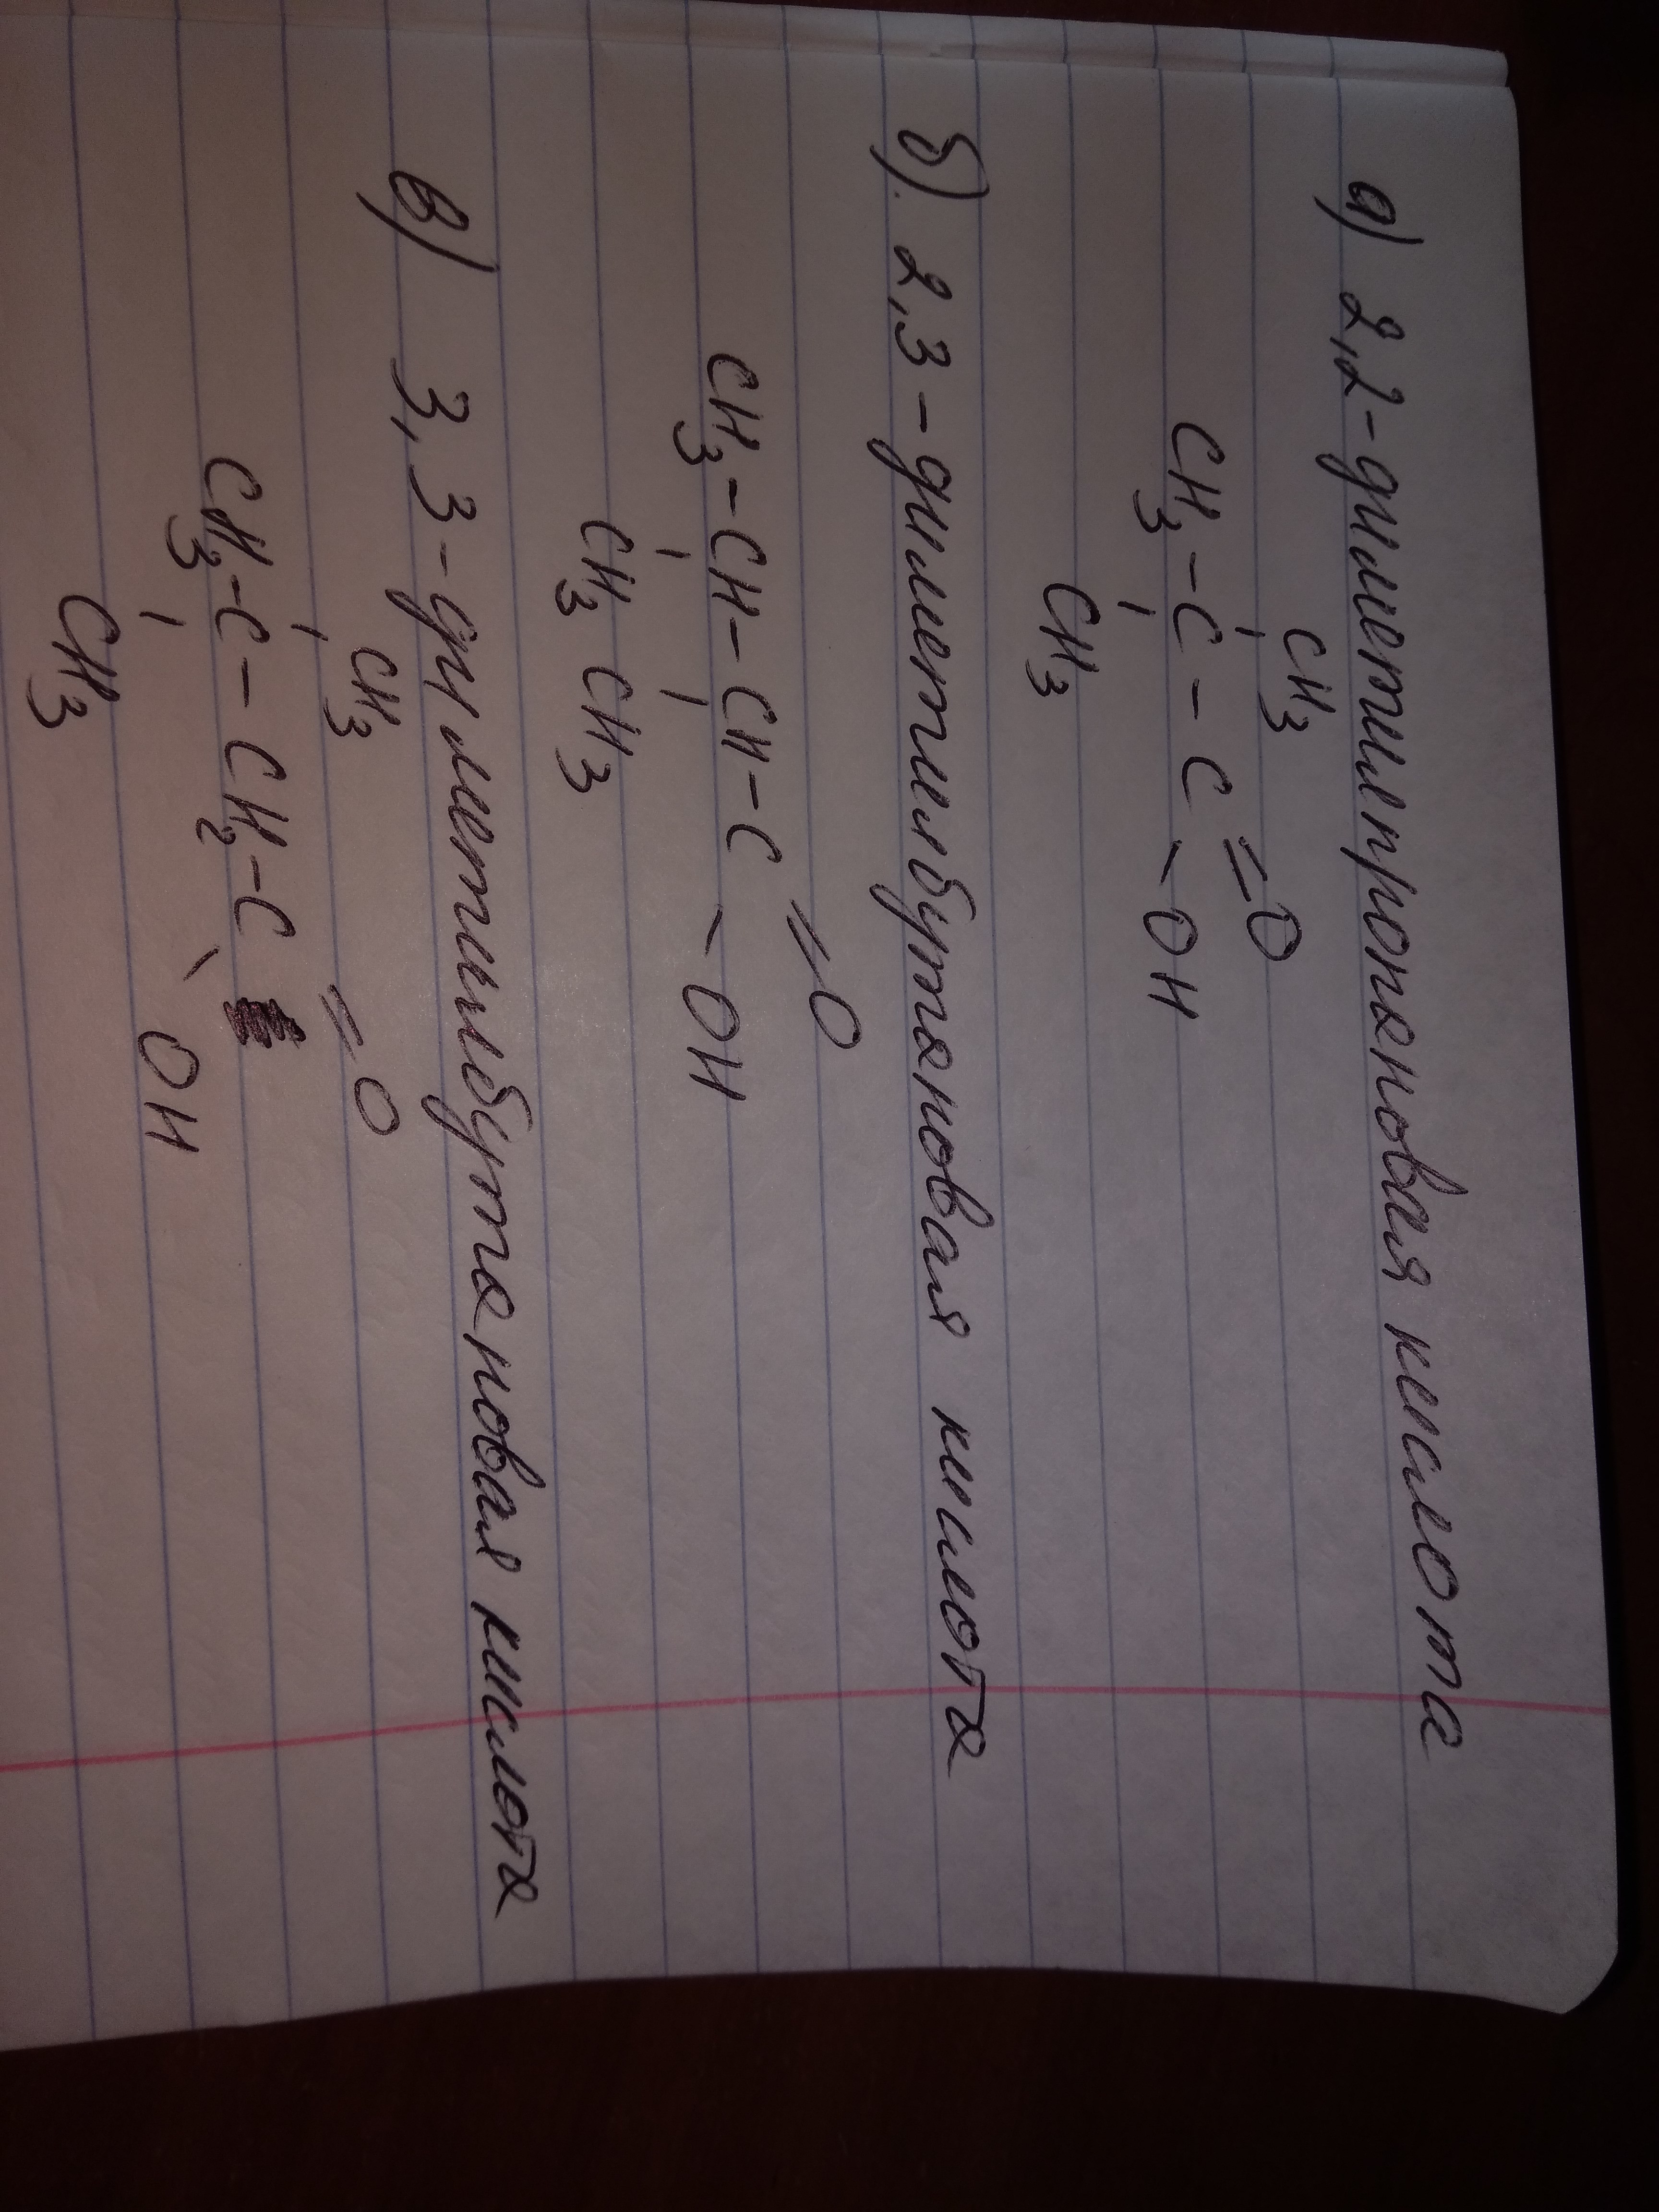 а) 2,2-диметилпропановая кислота
CH3
CH3-C-C=O
OH
CH3
б) 2,3-диметилбутановая кислота
=O
CH3-CH-CH-C
OH
CH3 CH3
в) 3,3-диметилбутановая кислота
CH3 =O
CH3-C-CH2-C
OH
CH3